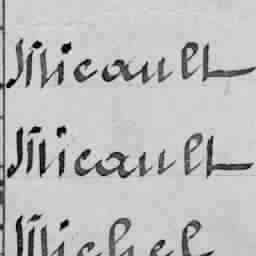 Micault
Micault
Michel